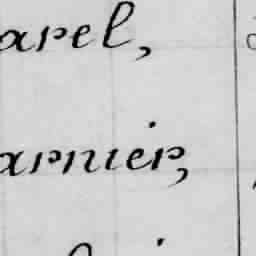 arel,
arnier,